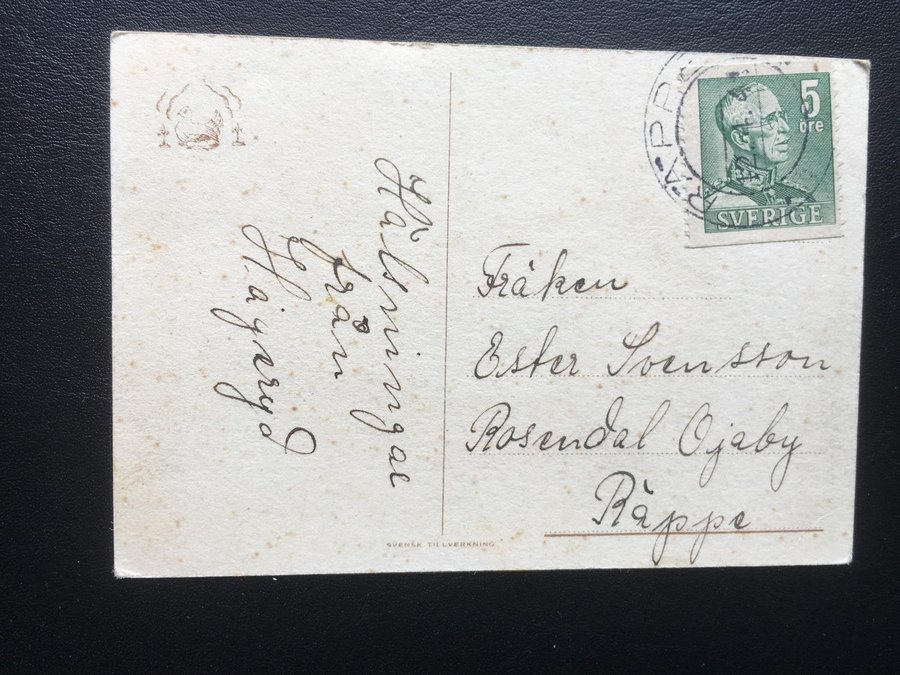 Hälsningar
från
Hagryd
RÄPPE
5
öre
SVERIGE
Fräken
Ester Svensson
Rosendal Öjaby
Räppe
SVENSK TILLVERKNING